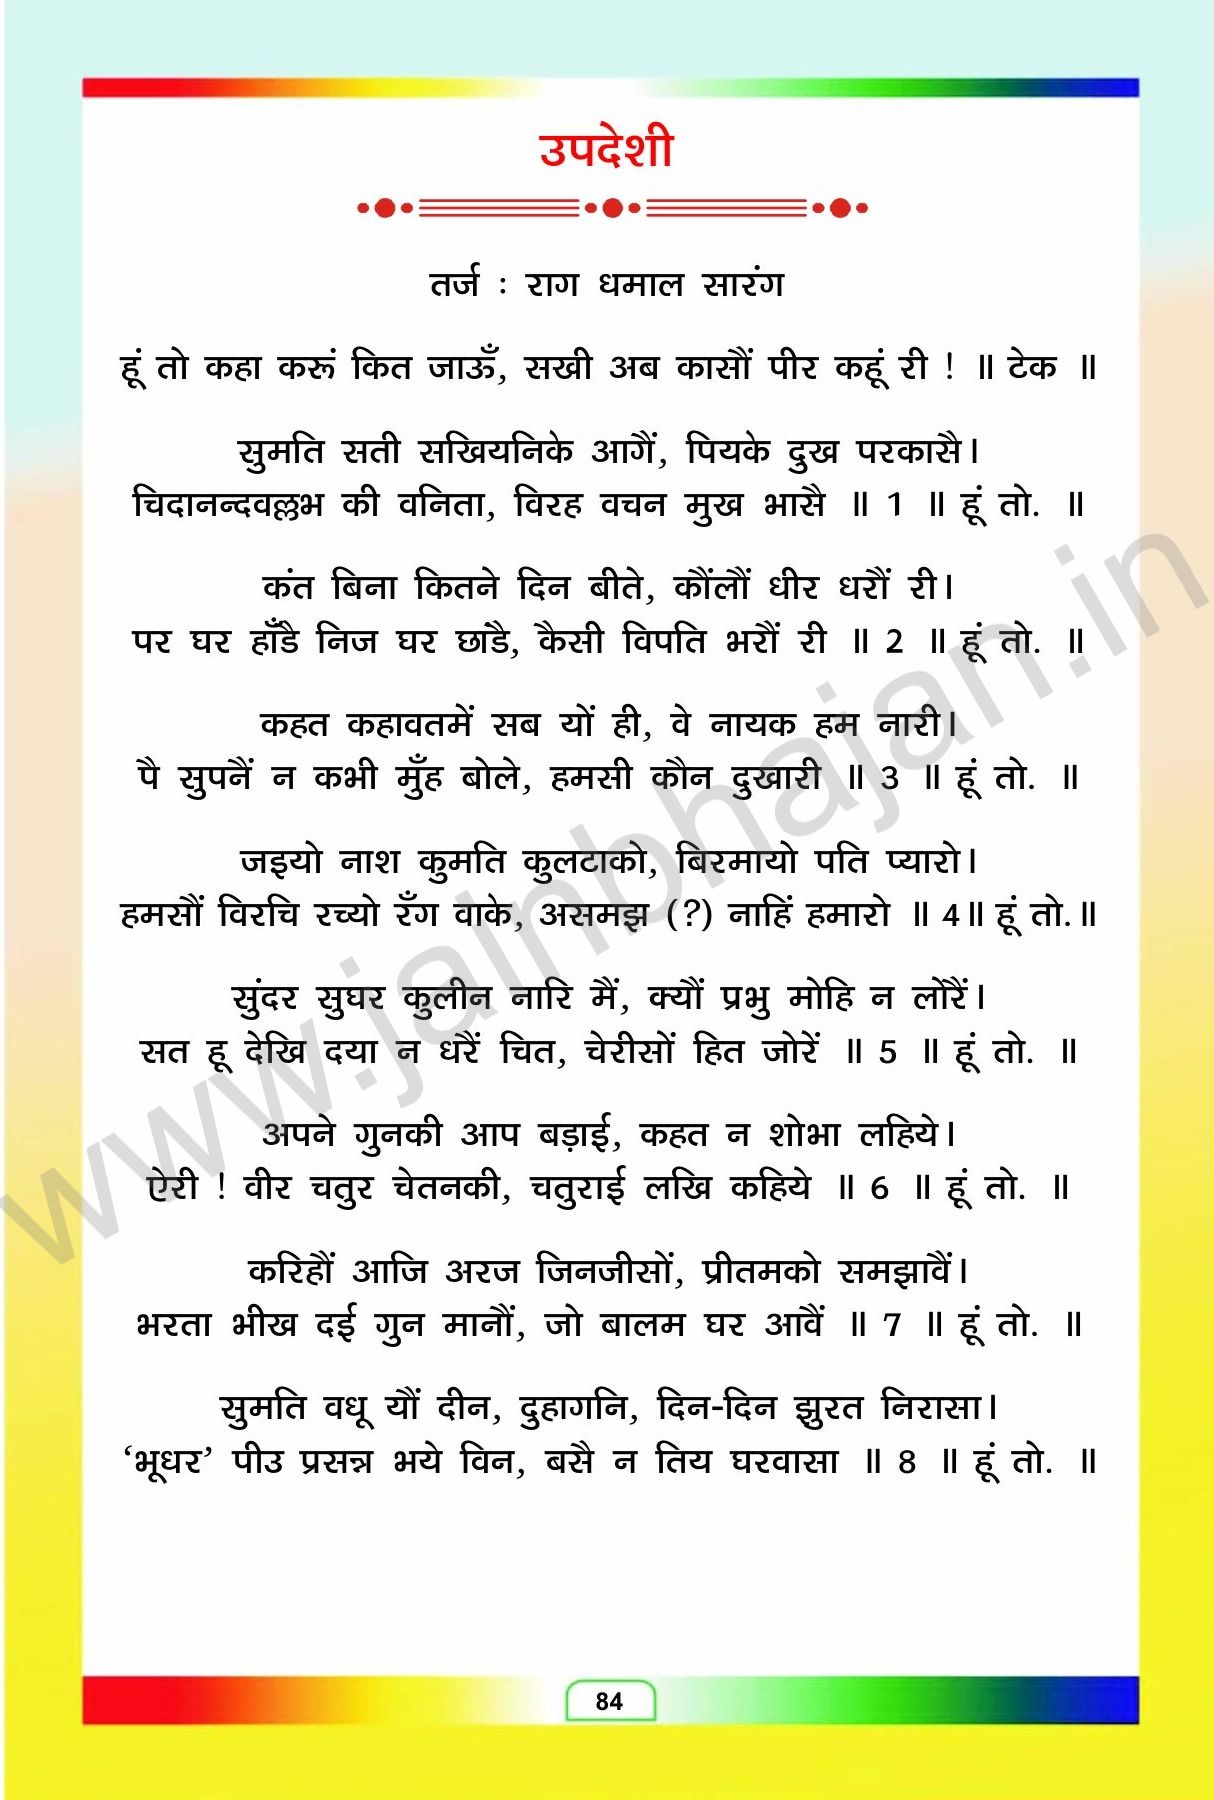 उपदेशी
तर्ज : राग धमाल सारंग
हूं तो कहा करूं कित जाऊँ, सखी अब कासौं पीर कहूं री ! ॥ टेक ॥
सुमति सती सखियनिके आगैं, पियके दुख परकासै।
चिदानन्दवल्लभ की वनिता, विरह वचन मुख भासै ॥ 1 ॥ हूं तो. ॥
कंत बिना कितने दिन बीते, कौंलौं धीर धरौं री।
पर घर हाँडै निज घर छांडै, कैसी विपति भरौं री ॥ 2 ॥ हूं तो. ॥
कहत कहावतमें सब यों ही, वे नायक हम नारी।
पै सुपनैं न कभी मुँह बोले, हमसी कौन दुखारी ॥ 3 ॥ हूं तो. ॥
जइयो नाश कुमति कुलटाको, बिरमायो पति प्यारो।
हमसौं विरचि रच्यो रँग वाके, असमझ (?) नाहिं हमारो ॥ 4॥ हूं तो.॥
सुंदर सुघर कुलीन नारि मैं, क्यौं प्रभु मोहि न लोरैं।
सत हू देखि दया न धरैं चित, चेरीसों हित जोरें ॥ 5 ॥ हूं तो. ॥
अपने गुनकी आप बड़ाई, कहत न शोभा लहिये।
ऐरी ! वीर चतुर चेतनकी, चतुराई लखि कहिये ॥ 6 ॥ हूं तो. ॥
करिहौं आजि अरज जिनजीसों, प्रीतमको समझावैं।
भरता भीख दई गुन मानौं, जो बालम घर आवैं ॥ 7 ॥ हूं तो. ॥
सुमति वधू यौं दीन, दुहागनि, दिन-दिन झुरत निरासा।
‘भूधर’ पीउ प्रसन्न भये विन, बसै न तिय घरवासा ॥ 8 ॥ हूं तो. ॥
www.jainbhajan.in
84